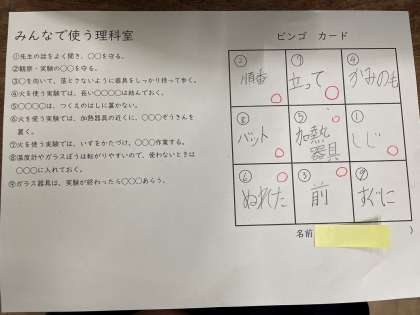 みんなで使う理科室
①先生の話をよく聞き、○○を守る。
②観察・実験の○○を守る。
③○を向いて、落とさないように器具をしっかり持って歩く。
④火を使う実験では、長い○○○○は結んでおく。
⑤○○○○は、つくえのはしに置かない。
⑥火を使う実験では、加熱器具の近くに、○○○ぞうきんを
置く。
⑦火を使う実験では、いすをかたづけ、○○○作業する。
⑧温度計やガラスぼうは転がりやすいので、使わないときは
○○○に入れておく。
⑨ガラス器具は、実験が終わったら○○○あらう。
ビンゴ カード
② ⑦ ④
順番 立って かみのも
⑧ ⑤ ①
バット 加熱器具 しじ
⑥ ③ ⑨
ぬれた 前 すぐに
名前( )